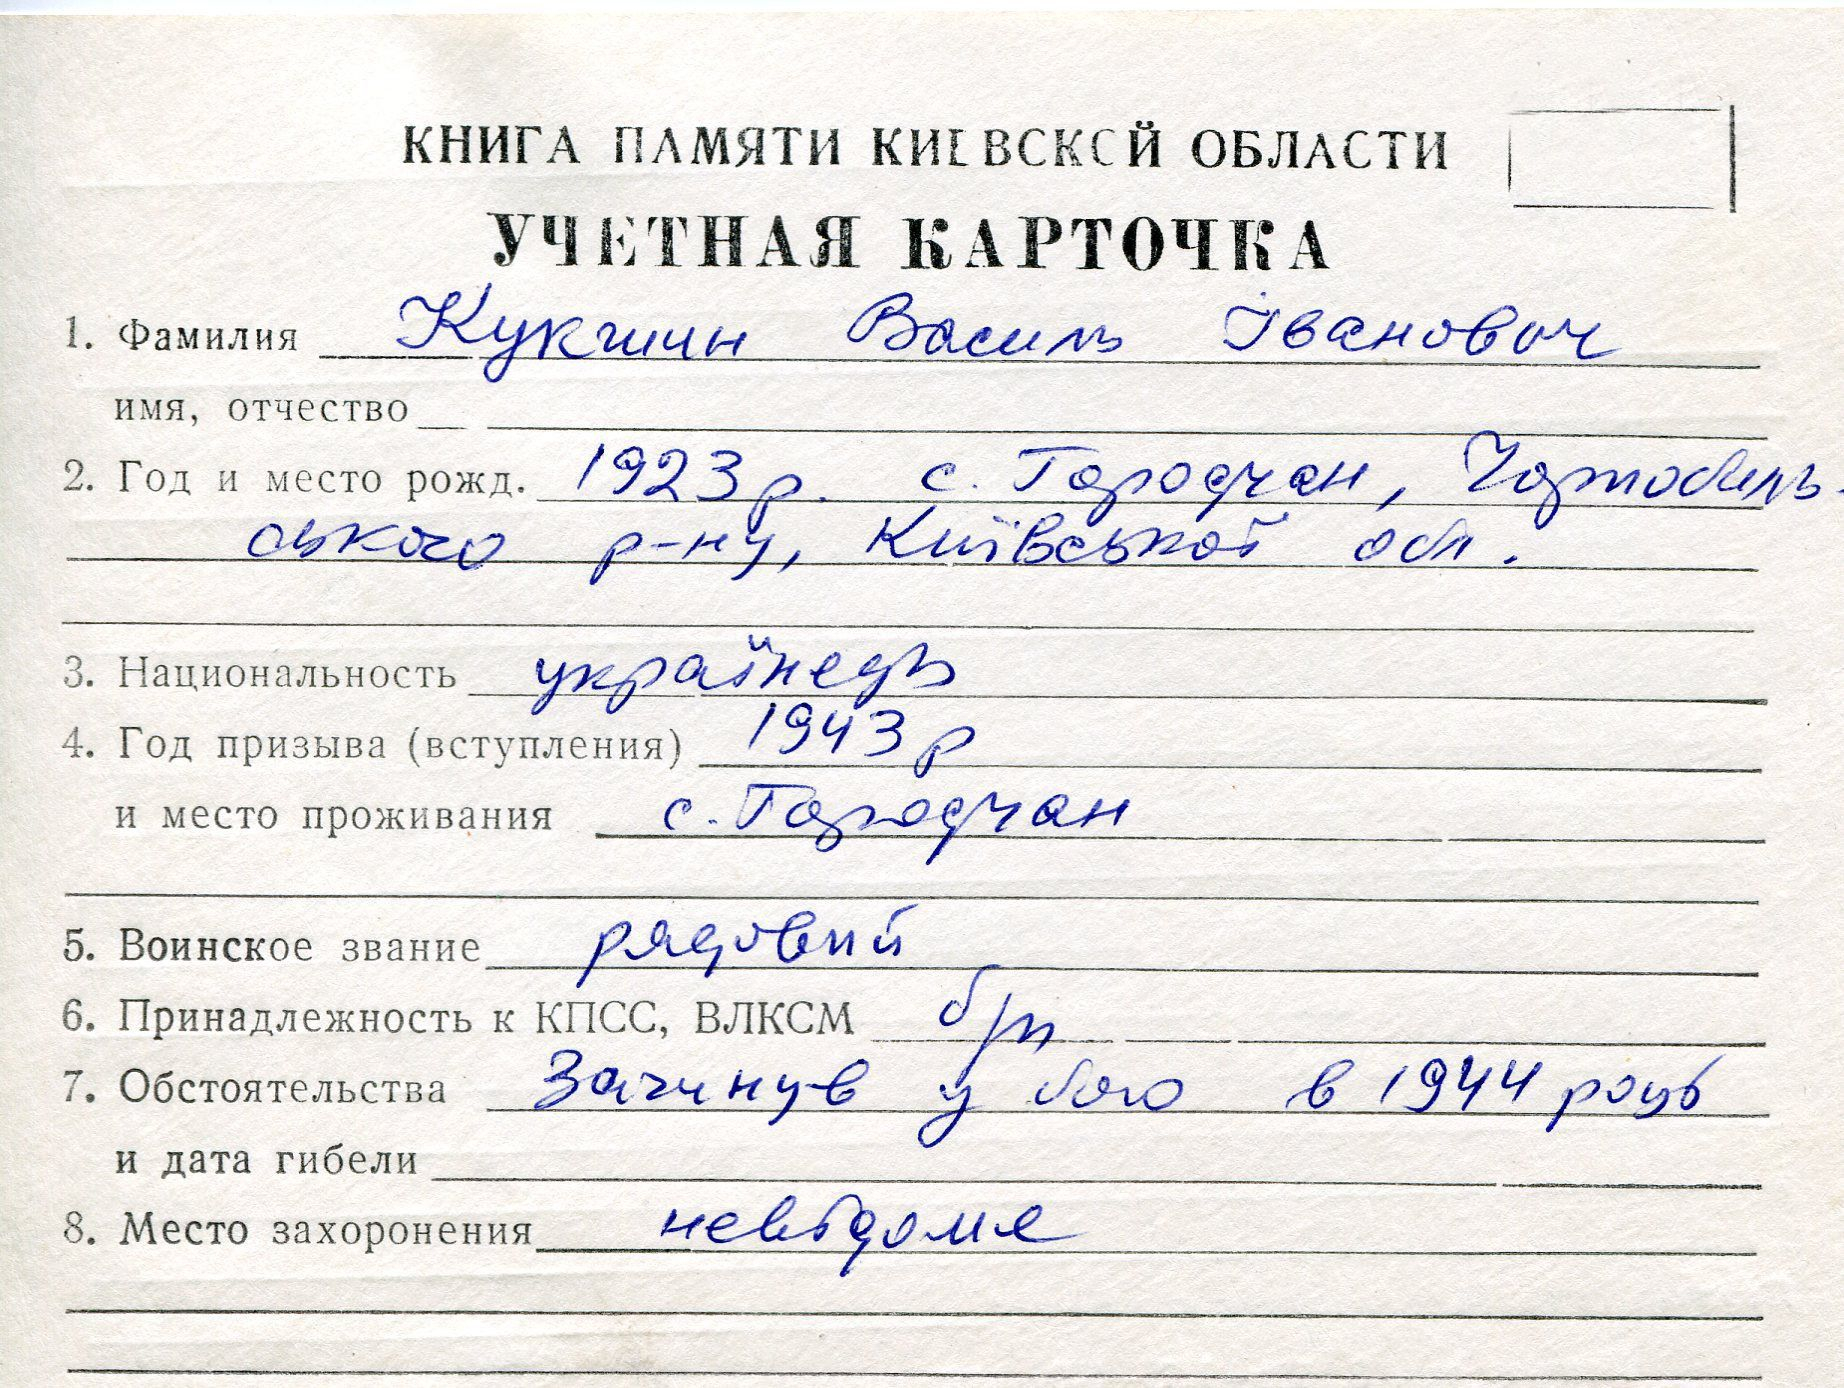 КНИГА ПАМЯТИ КИЕВСКОЙ ОБЛАСТИ
УЧЕТНАЯ КАРТОЧКА
1. Фамилия Кукшин Василь Іванович
имя, отчество
2. Год и место рожд. 1923 р. с. Городчан, Чорнобиль-
ського р-ну, Київської обл.
3. Национальность українець
4. Год призыва (вступления) 1943 р
и место проживания с. Городчан
5. Воинское звание рядовий
6. Принадлежность к КПСС, ВЛКСМ б/п
7. Обстоятельства Загинув у бою в 1944 році
и дата гибели
8. Место захоронения невідоме